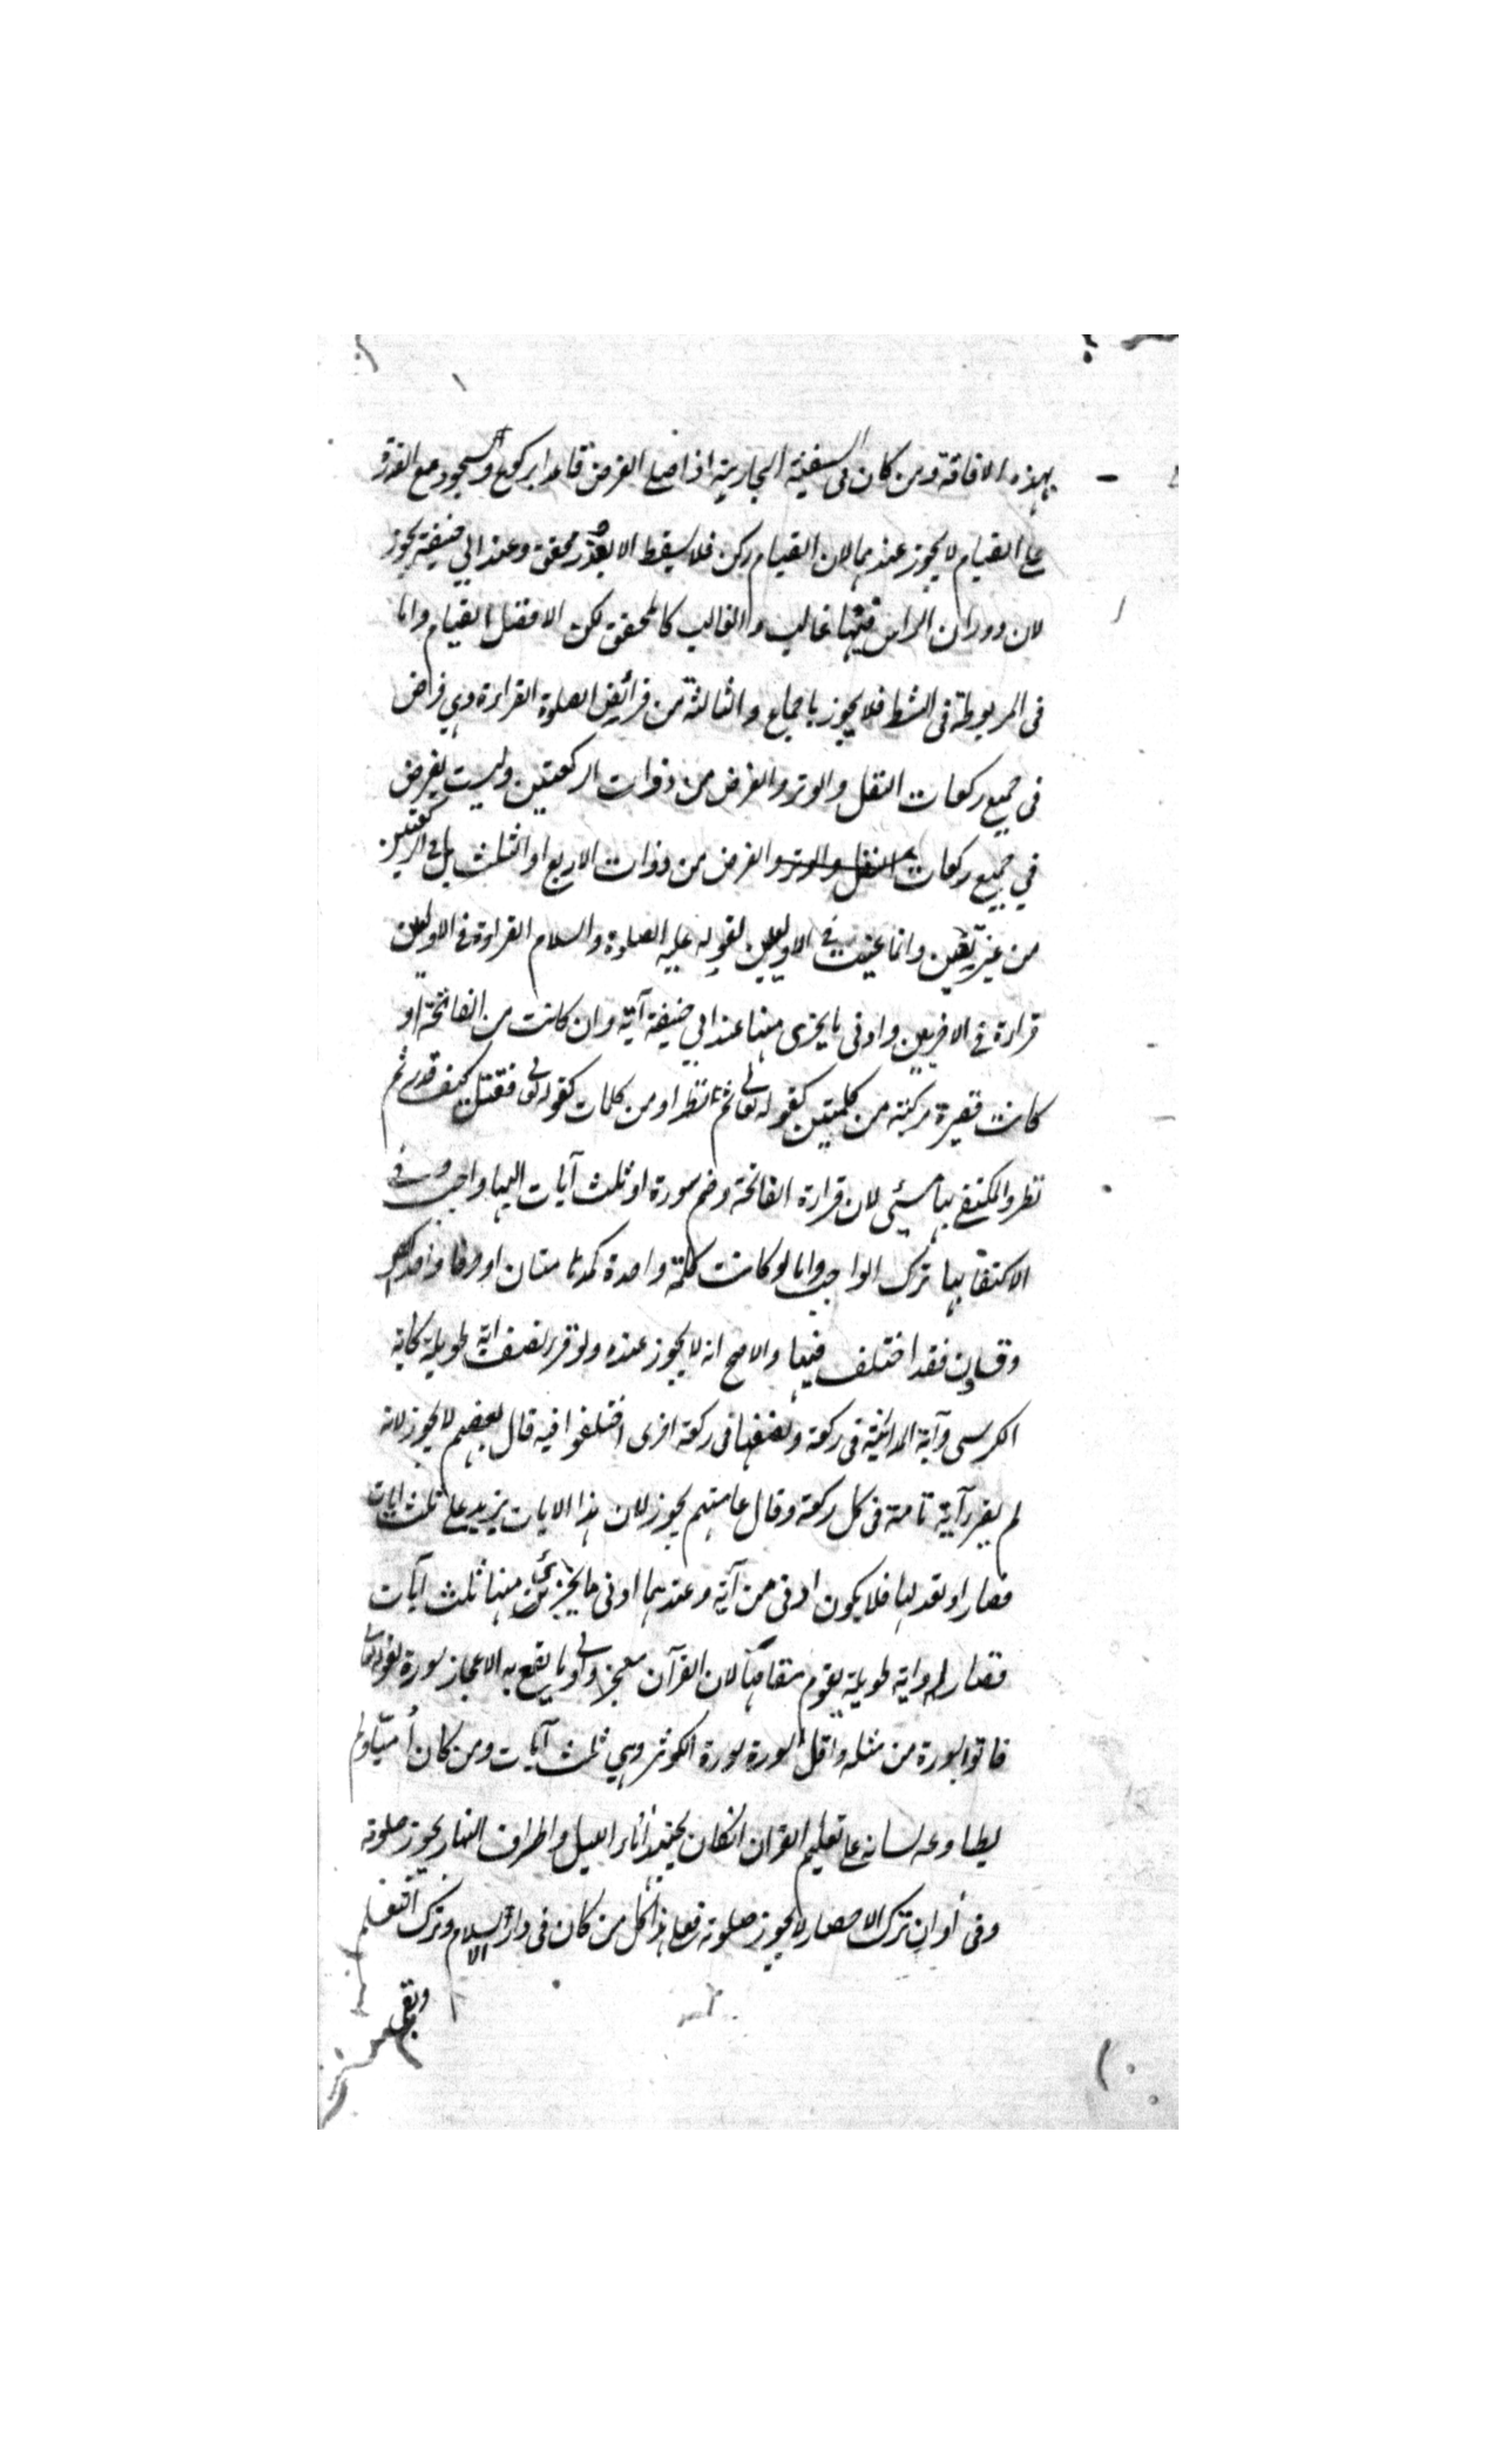 بهذه الافاقة ومن كان فى السفينة الجارية اذا صلى الفرض قاعدا بركوع وسجود مع القدرة
على القيام لا يجوز عندهما لان القيام ركن فلا يسقط الا بعذر محقق وعند ابي حنيفة يجوز
لان دوران الراس فيها غالب والغالب كالمحقق لكن الافضل القيام واما
فى المربوطة فى الشط فلا يجوز باجماع والثالثة من فرائض الصلوة القراءة وهي فرض
فى جميع ركعات النفل والوتر والفرض من ذوات الركعتين وليست بفرض
في جميع ركعات النفل والوتر والفرض من ذوات الاربع او الثلث بل فى الركعتين
من غير تعين وانما عينت في الاوليين لقوله عليه الصلوة والسلام القراءة فى الاوليين
قراءة فى الاخريين وادنى ما يجزى منها عند ابي حنيفة آية وان كانت من الفاتحة او
كانت قصيرة مركبة من كلمتين كقوله تعالى ثم نظر او من كلمات كقوله تعالى فقتل كيف قدر ثم
نظر والمكتفى بها مسئى لان قراءة الفاتحة وضم سورة او ثلث آيات اليها واجب وفى
الاكتفا بها ترك الواجب واما لو كانت كلمة واحدة كمدهامتان او حرفا واحدا كص
وق ون فقد اختلف فيها والاصح انه لا يجوز عنده ولو قرء نصف اية طويلة كاية
الكرسى وآية المداينة فى ركعة ونصفها فى ركعة اخرى اختلفوا فيه قال بعضهم لا يجوز لانه
لم يقرء آية تامة فى كل ركعة وقال عامتهم يجوز لان هذا الايات يزيد على ثلث ايات
قصار او تعدلها فلا يكون ادنى من آية وعندهما ادنى ما يجزئ من منها ثلث آيات
قصار او اية طويلة يقوم مقامها لان القرآن معجز وادنى ما يقع به الاعجاز سورة لقوله تعالى
فاتوا بسورة من مثله واقل السورة سورة الكوثر وهي ثلث آيات ومن كان أميّا ولم
يطاوعه لسانه على تعليم القران انكان يجتهد آناء الليل واطراف النهار يجوز صلوته
وفى أوان ترك لا يجوز صلوته فعلى هذا كل من كان فى دار الاسلام وترك التعلم
وبقى